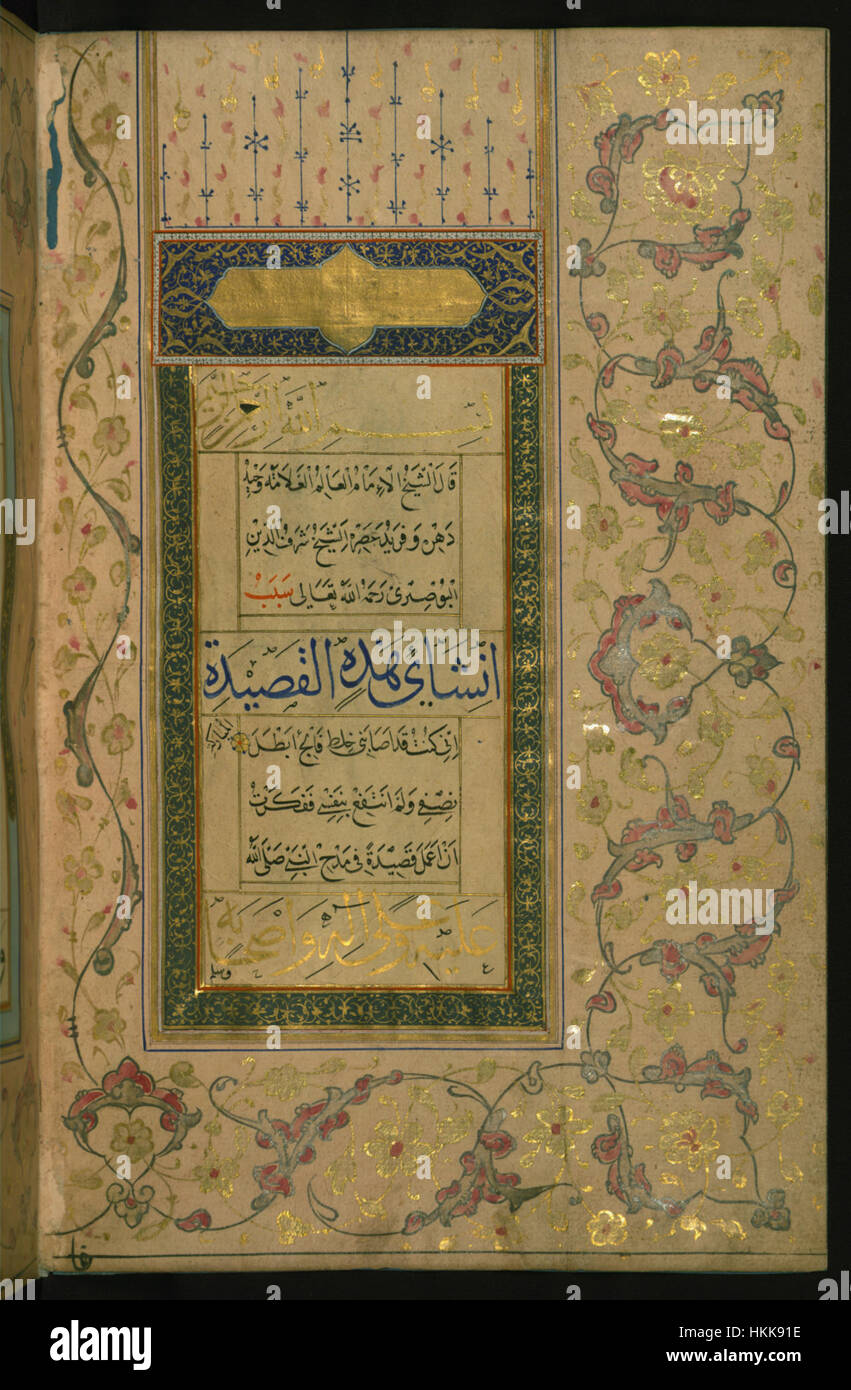 بسم الله الرحمن الرحيم
قال الشيخ الإمام العالم العلامة وحيد
دهره وفريد عصره الشيخ شرف الدين
البوصيري رحمه الله تعالى سبب
انشاي هذه القصيدة
اني كنت قد اصابني خلط فالج ابطل
نصفي ولم انتفع بنفسي ففكرت
ان اعمل قصيدة في مدح النبي صلى الله
عليه وعلى اله واصحابه
وسلم
alamy stock photo
HKK91E
www.alamy.com